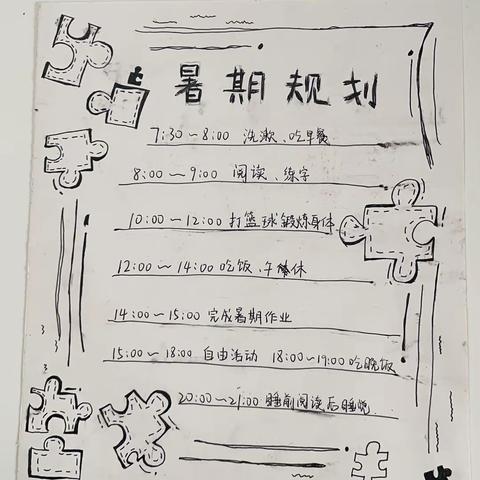 暑期规划
7:30~8:00 洗漱、吃早餐
8:00~9:00 阅读、练字
10:00~12:00 打篮球锻炼身体
12:00~14:00 吃饭、午休
14:00~15:00 完成暑期作业
15:00~18:00 自由活动 18:00~19:00 吃晚饭
20:00~21:00 睡前阅读后睡觉